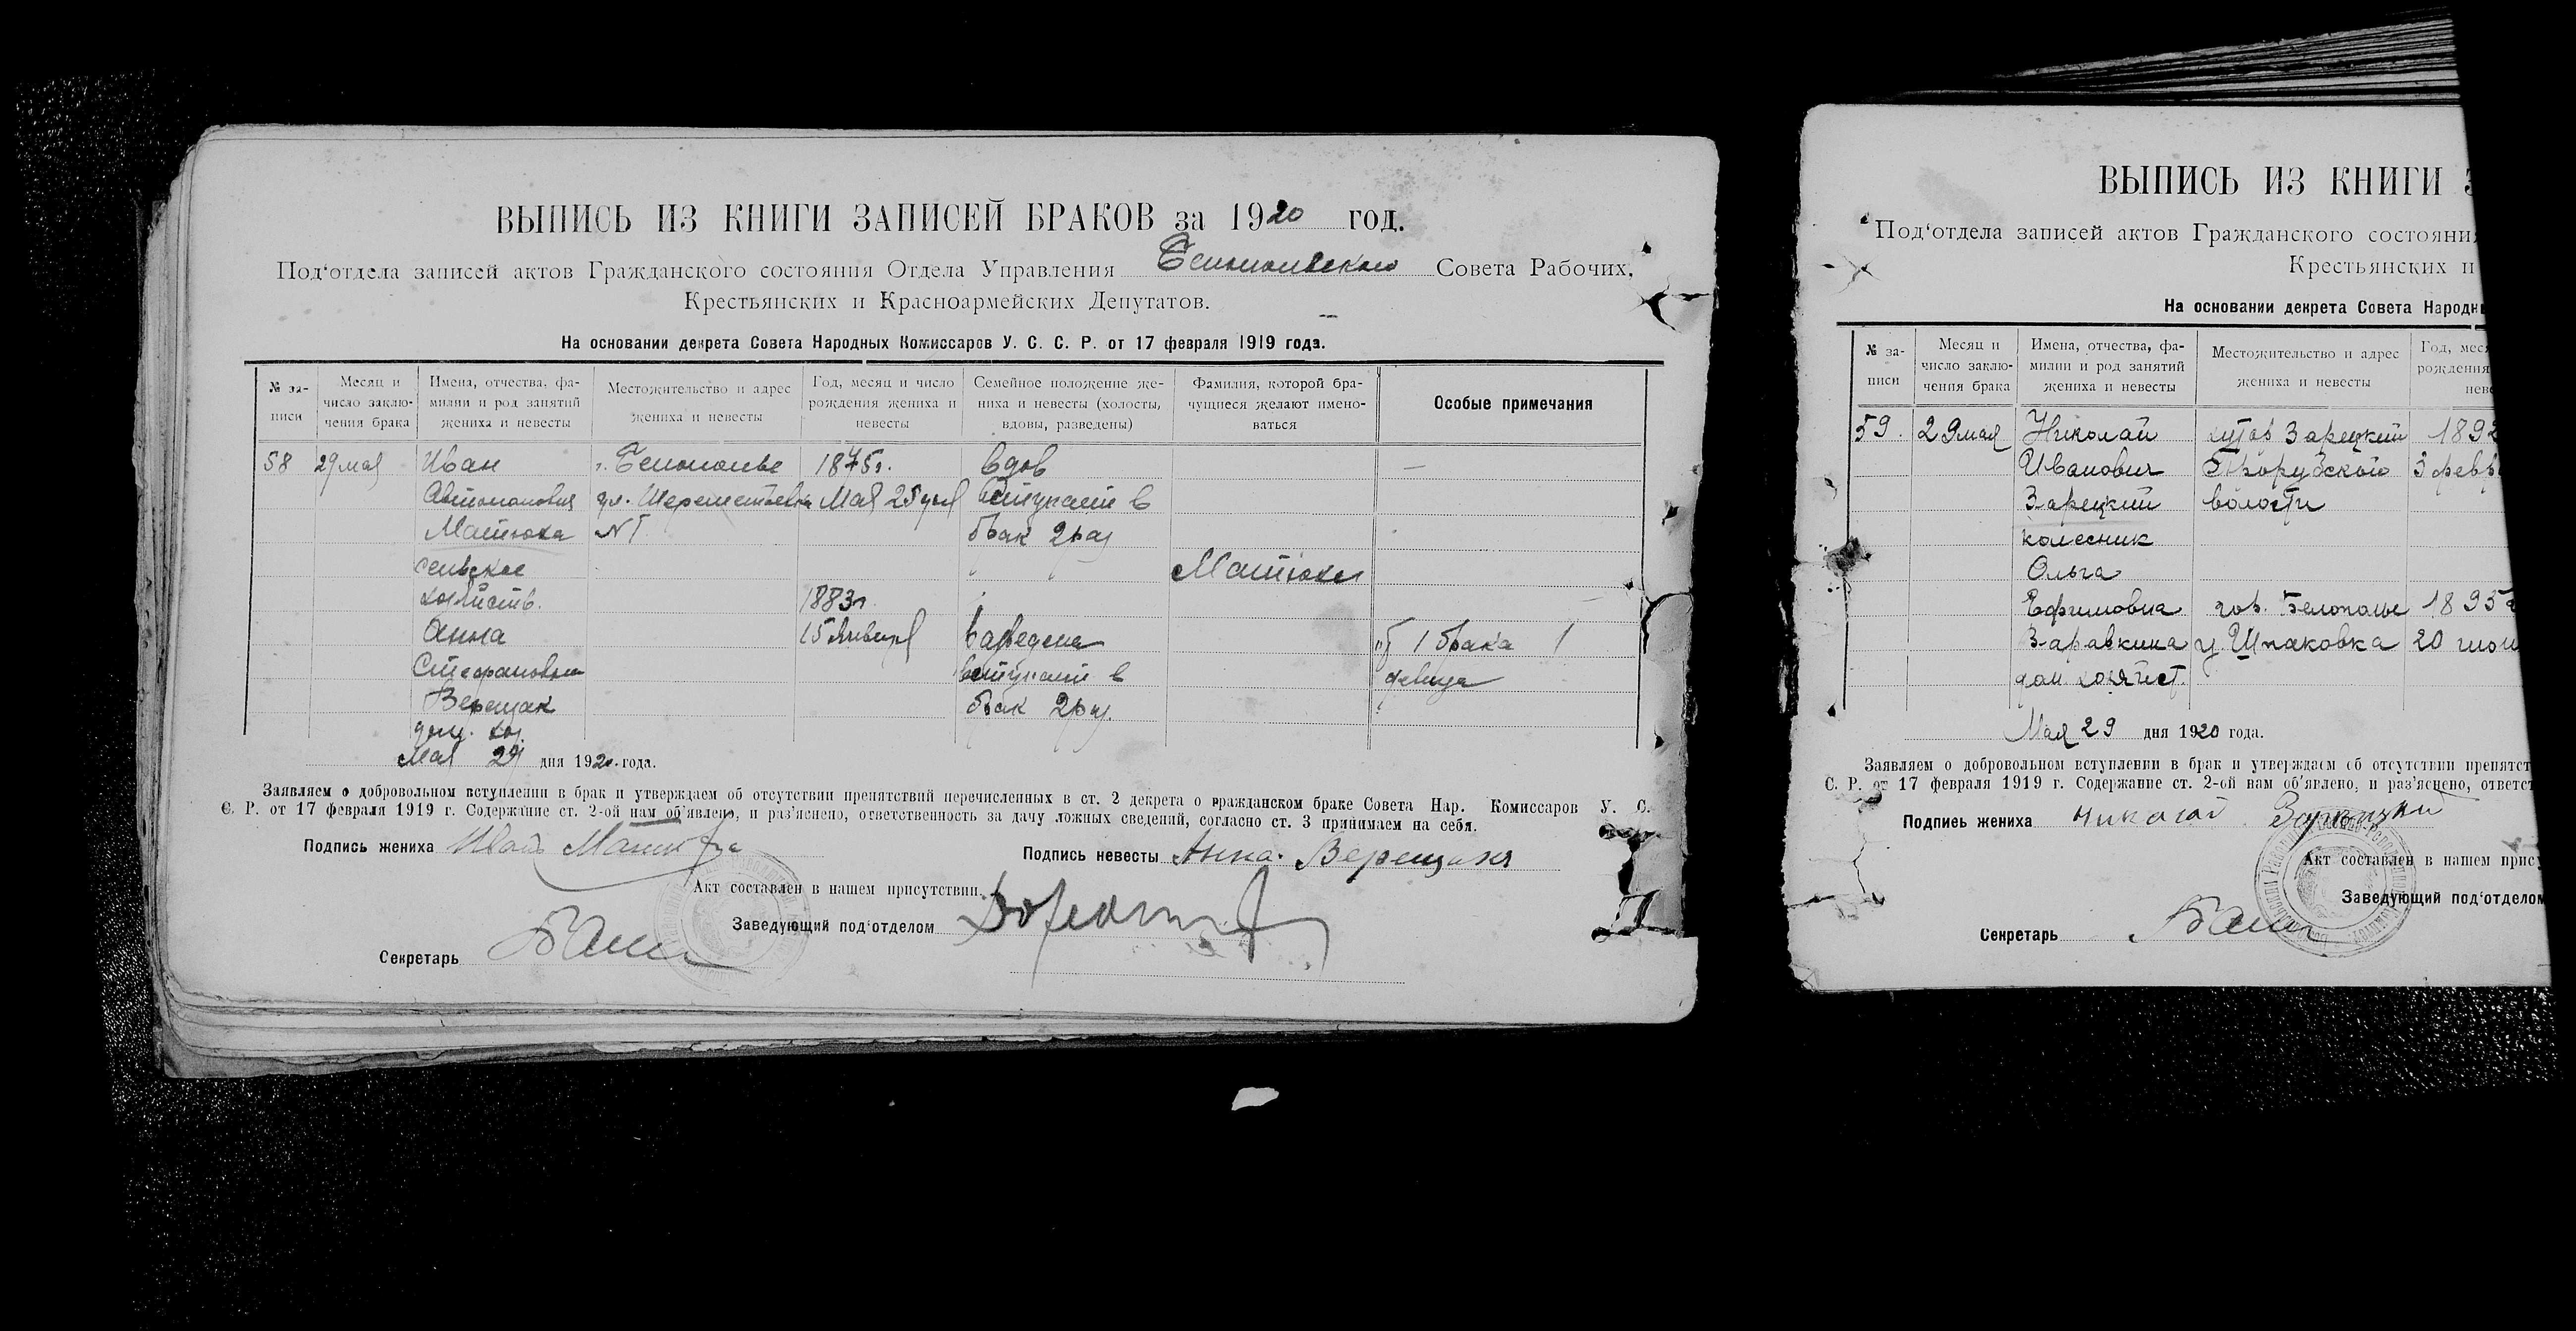 ВЫПИСЬ ИЗ КНИГИ ЗАПИСЕЙ БРАКОВ за 1920 год.
Под‘отдела записей актов Гражданского состояния Отдела Управления Белопольского Совета Рабочих,
Крестьянских и Красноармейских Депутатов.
На основании декрета Совета Народных Комиссаров У. С. С. Р. от 17 февраля 1919 года.
№ за-писи | Месяц и число заклю-чения брака | Имена, отчества, фа-милии и род занятий жениха и невесты | Местожительство и адрес жениха и невесты | Год, месяц и число рождения жениха и невесты | Семейное положение же-ниха и невесты (холосты, вдовы, разведены) | Фамилия, которой бра-чущиеся желают имено-ваться | Особые примечания
58 29 мая Иван г. Белополье 1875г. вдов —
Автономович ул. Шереметьевка Мая 25 дня вступает в
Матюха №1 брак 2 раз
сельское Матюха
хозяйств. 1883г.
Анна 15 Января разведена от 1 брака 1
Стефановна вступает в девица
Верещак брак 2 раз.
дом. хоз.
Мая 29 дня 1920 года.
Заявляем о добровольном вступлении в брак и утверждаем об отсутствии препятствий перечисленных в ст. 2 декрета о гражданском браке Совета Нар. Комиссаров У. С.
С. Р. от 17 февраля 1919 г. Содержание ст. 2-ой нам об‘явлено, и раз‘яснено, ответственность за дачу ложных сведений, согласно ст. 3 принимаем на себя.
Подпись жениха Иван Матюха Подпись невесты Анна Верещака
Акт составлен в нашем присутствии.
Заведующий под‘отделом
Секретарь
ВЫПИСЬ ИЗ КНИГИ
Под‘отдела записей актов Гражданского состояния
Крестьянских и
На основании декрета Совета Народн
№ за-писи | Месяц и число заклю-чения брака | Имена, отчества, фа-милии и род занятий жениха и невесты | Местожительство и адрес жениха и невесты | Год, меся рождения неве
59. 29 мая Николай хутор Зарецкий 1892
Иванович Прорубского 3 февр
Зарецкий волости
колесник
Ольга
Ефимовна гор. Белополье 1895г
Заравкина у. Шпаковка 20 июн
дом хозяйст.
Мая 29 дня 1920 года.
Заявляем о добровольном вступлении в брак и утверждаем об отсутствии препятст
С. Р. от 17 февраля 1919 г. Содержание ст. 2-ой нам об‘явлено, и раз‘яснено, ответст
Подпись жениха Николай Зарецкий
Акт составлен в нашем прису
Заведующий под‘отделом
Секретарь